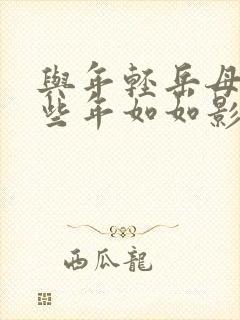 與年輕岳母
些年如如影
西瓜龍